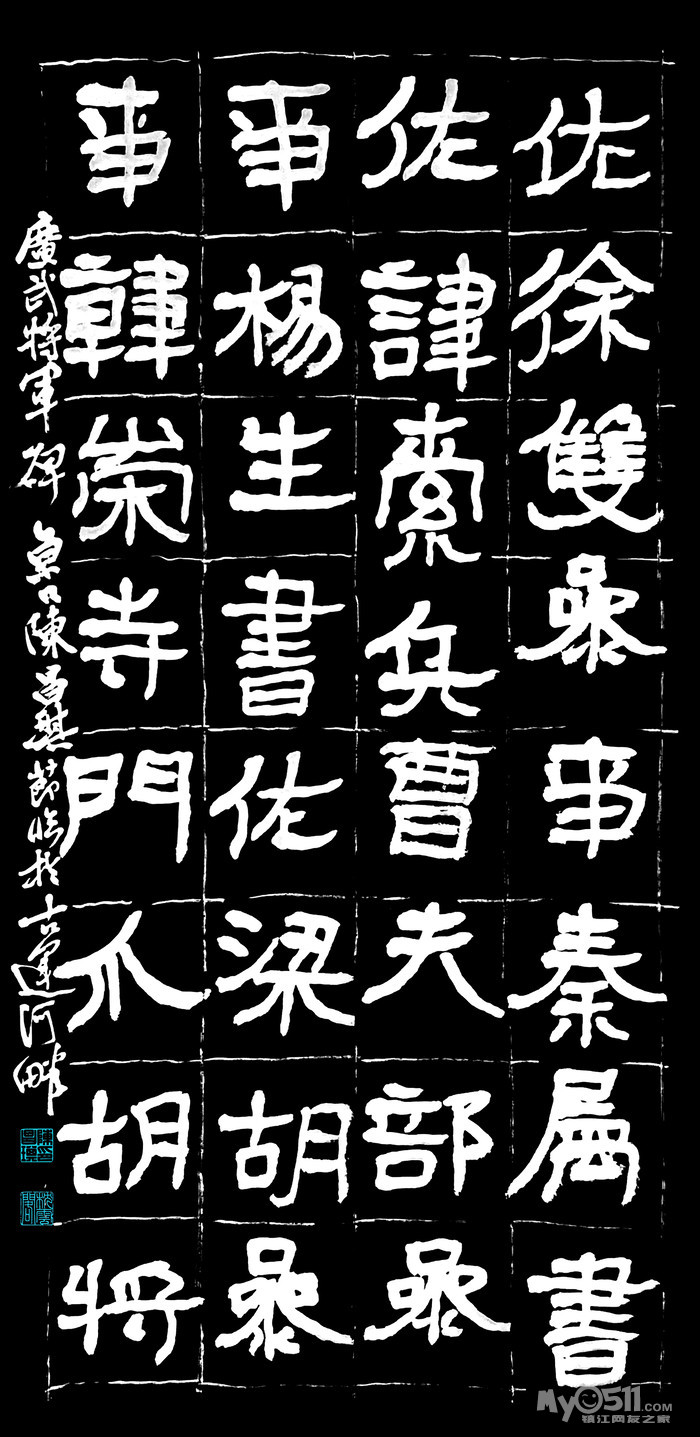 佐徐雙彔事秦屬書
佐諱索兵曹夫部彔
事楊生書佐梁胡彔
事韓崇寺門胡將
廣武將軍碑 京口陳昌節臨於古運河畔
My0511.COM
镇江网友之家